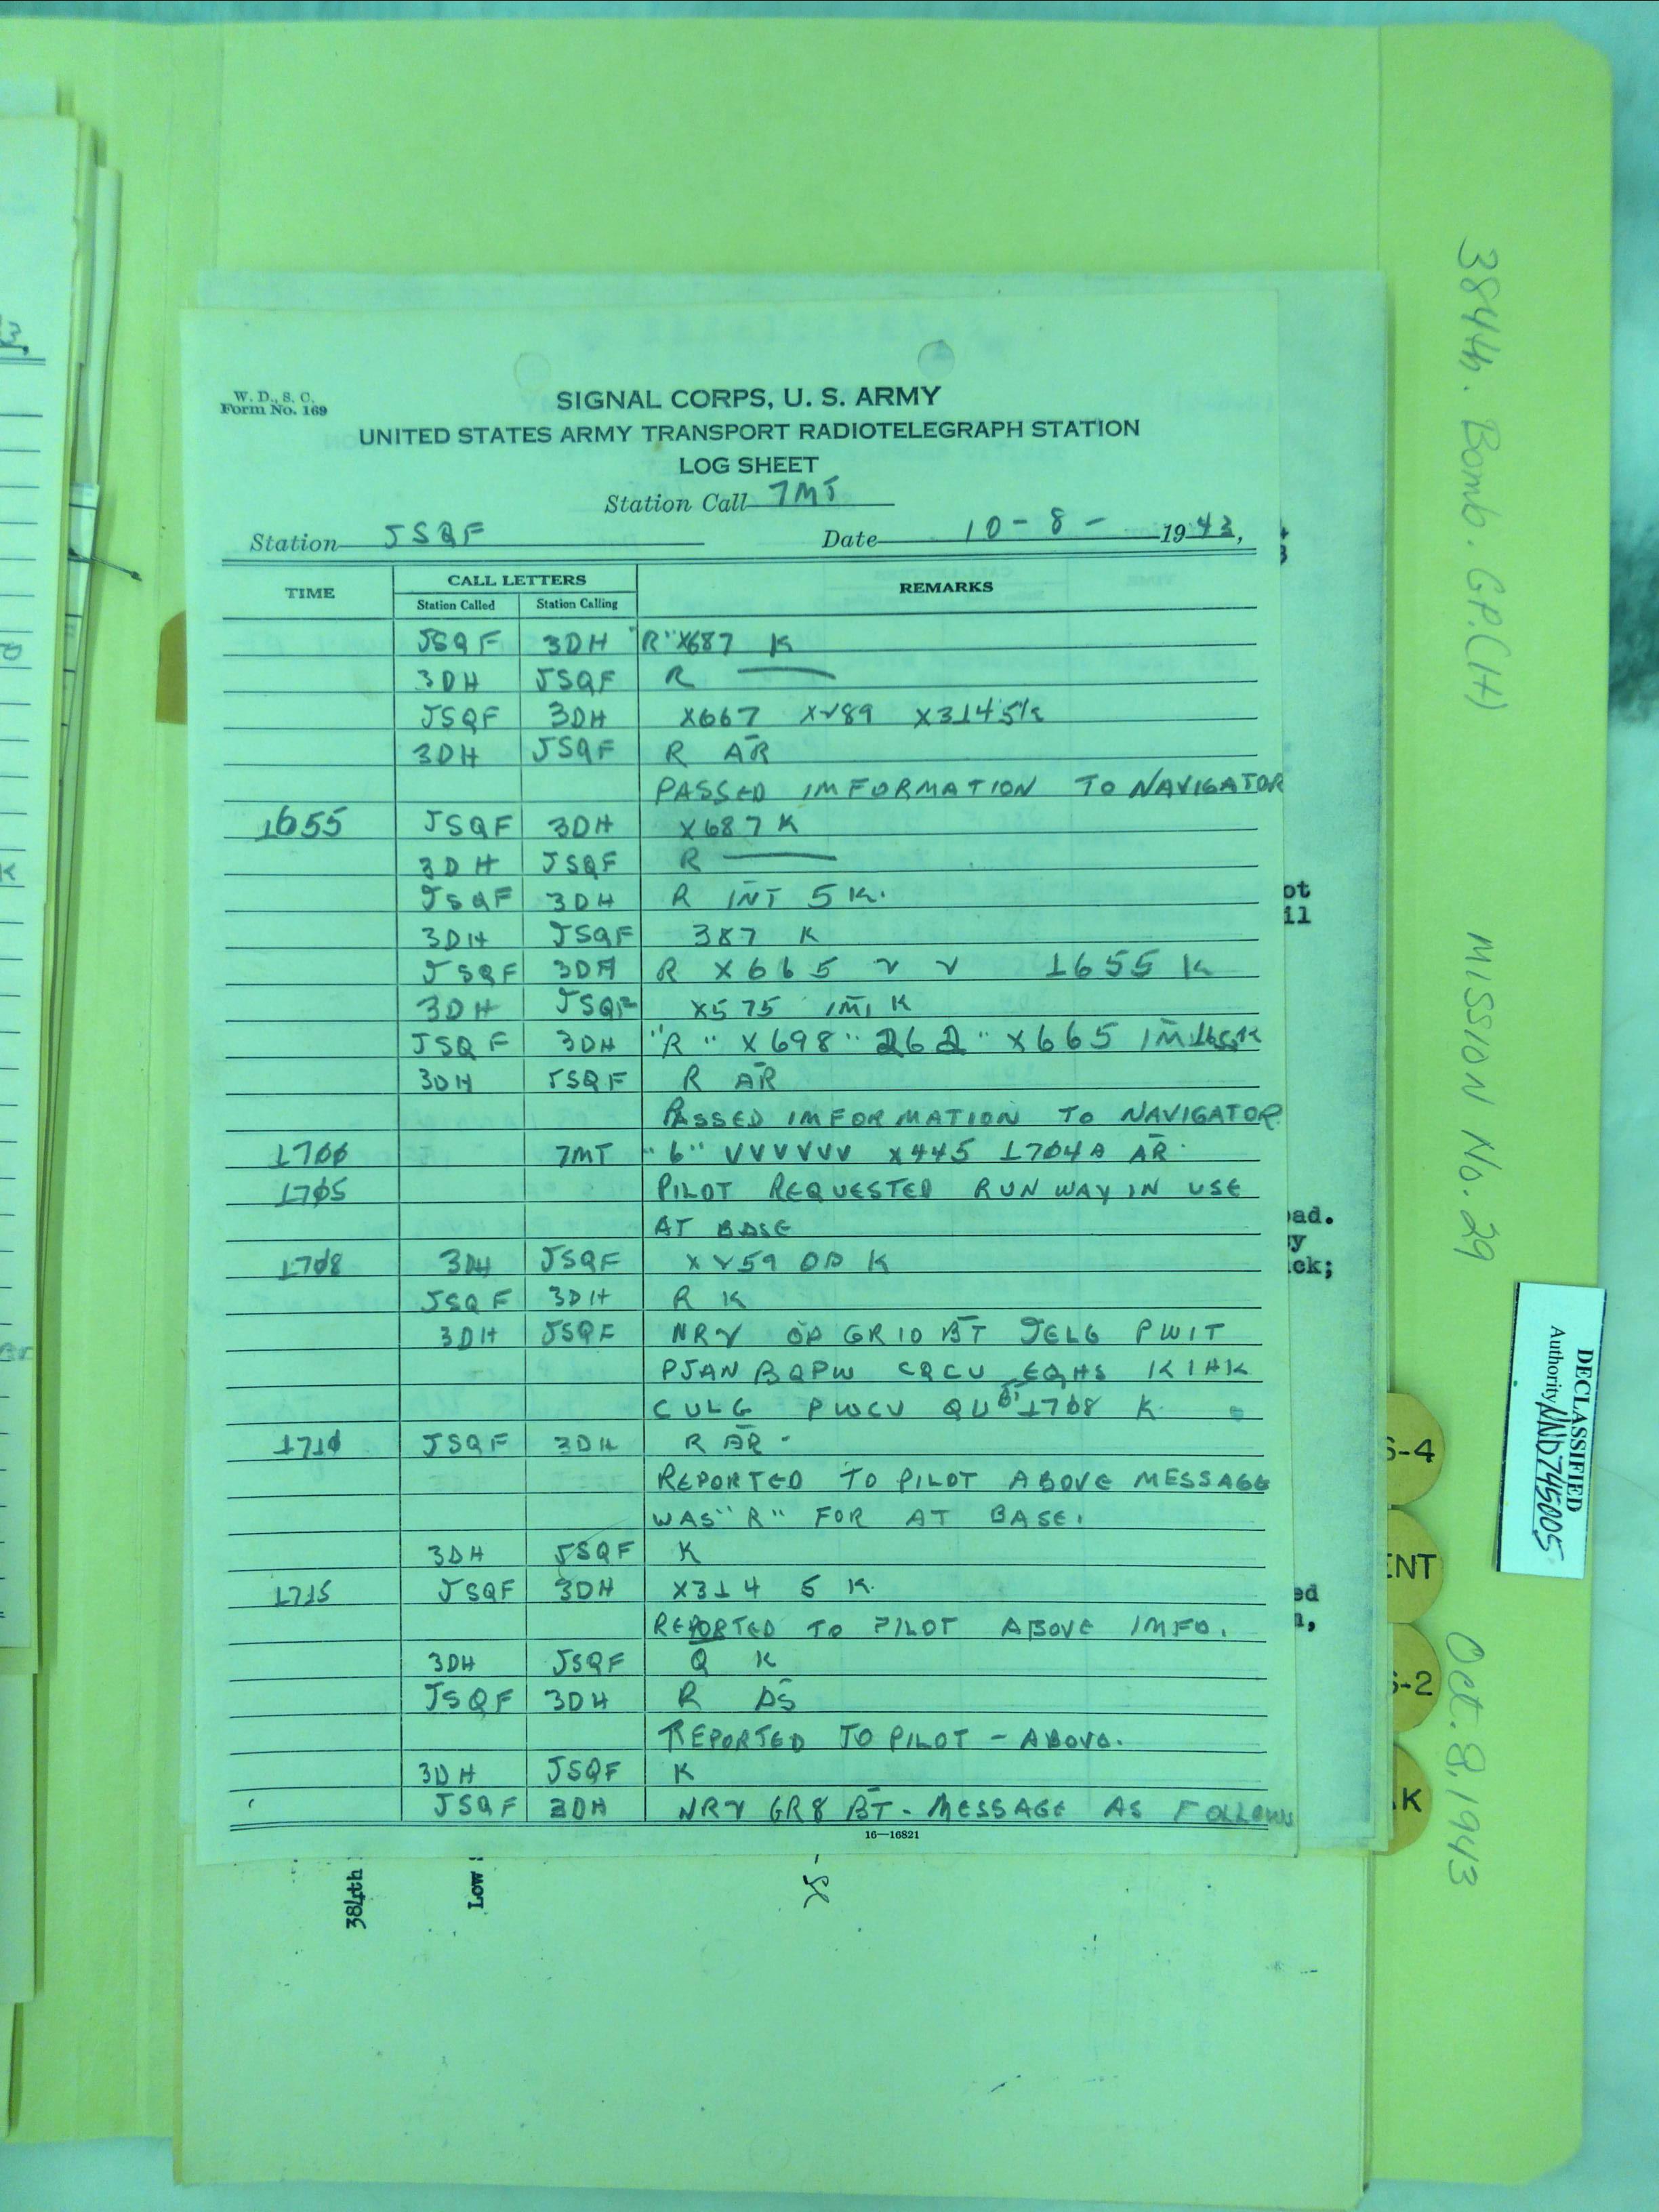 W. D., S. C.
Form No. 169
SIGNAL CORPS, U. S. ARMY
UNITED STATES ARMY TRANSPORT RADIOTELEGRAPH STATION
LOG SHEET
Station Call 7MT
Station JSQF Date 10-8- 1943,
TIME CALL LETTERS REMARKS
Station Called Station Calling
JSQF 3DH "R" X687 K
3DH JSQF R ——
JSQF 3DH X667 XV89 X314 5 K
3DH JSQF R AR
PASSED IMFORMATION TO NAVIGATOR
1655 JSQF 3DH X687 K
3DH JSQF R ——
JSQF 3DH R INT 5 K.
3DH JSQF 387 K
JSQF 3DH R X665 V V 1655 K
3DH JSQF X575 IMI K
JSQF 3DH "R" X698 "262" X665 IM
3DH JSQF R AR
PASSED IMFORMATION TO NAVIGATOR
1700 7MT "6" VVVVVV X445 1704A AR
1705 PILOT REQUESTED RUNWAY IN USE
AT BASE
1708 3DH JSQF XV59 OP K
JSQF 3DH R K
3DH JSQF NRV OP GR10 BT JELG PWIT
PJAN BQPW CQCU EQHS KIHK
CULG PWCV QU BT 1708 K
1710 JSQF 3DH R AR -
REPORTED TO PILOT ABOVE MESSAGE
WAS "R" FOR AT BASE.
3DH JSQF K
1715 JSQF 3DH X314 5 K.
REPORTED TO PILOT ABOVE IMFO.
3DH JSQF Q K
JSQF 3DH R AS
REPORTED TO PILOT - ABOVE.
3DH JSQF K
JSQF 3DH NRV GR8 BT - MESSAGE AS FOLLOWS
16—16821
384th
Low
384th. Bomb. GP.(H)
MISSION No. 29
Oct. 8, 1943
DECLASSIFIED
Authority NND745005
S-4
ENT
S-2
K
ot
il
oad.
y
ck;
ed